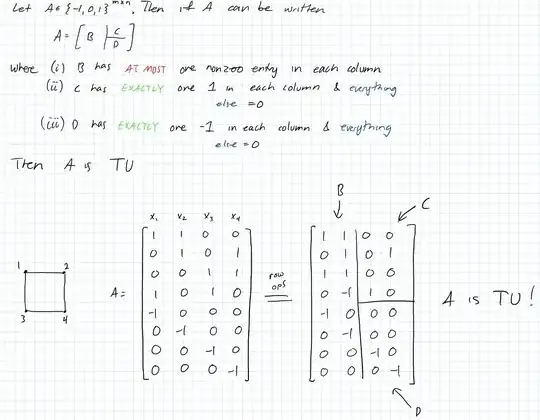 Let A∈{-1,0,1}^{m×n}. Then if A can be written
A = [ B | C / D ]
where (i) B has AT MOST one nonzero entry in each column
(ii) C has EXACTLY one 1 in each column & everything
else = 0
(iii) D has EXACTLY one -1 in each column & everything
else = 0
Then A is TU
x₁ x₂ x₃ x₄
1 1 0 0
0 1 0 1
0 0 1 1
1 0 1 0
-1 0 0 0
0 -1 0 0
0 0 -1 0
0 0 0 -1
A =
1 2
3 4
row
ops
B
C
1 1 0 0
0 1 0 1
1 1 0 0
0 -1 1 0
-1 0 0 0
0 -1 0 0
0 0 -1 0
0 0 0 -1
D
A is TU!